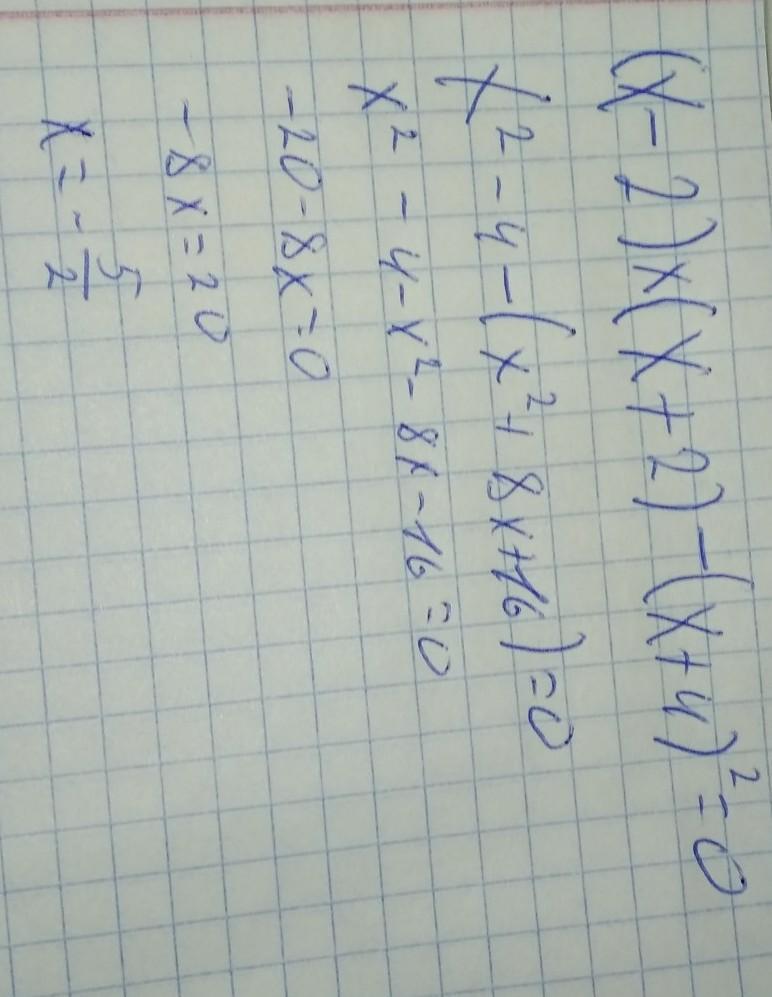 (x-2)×(x+2)-(x+4)²=0
x²-4-(x²+8x+16)=0
x²-4-x²-8x-16=0
-20-8x=0
-8x=20
x=-5/2